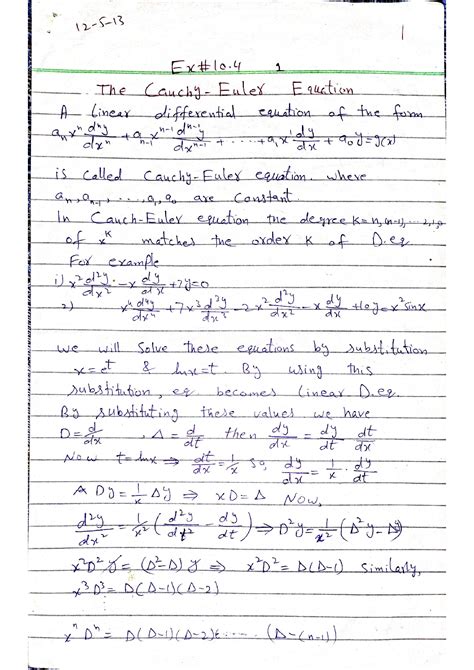 12-5-13
1
Ex#10.4 1
The Cauchy-Euler Equation
A linear differential equation of the form
aₙxⁿ dⁿy/dxⁿ + aₙ₋₁xⁿ⁻¹ dⁿ⁻¹y/dxⁿ⁻¹ + ... + a₁x¹ dy/dx + a₀y = g(x)
is called Cauchy-Euler equation. where
aₙ, aₙ₋₁, ..., a₁, a₀ are Constant.
In Cauch-Euler equation the degree K=n,(n-1),...2,1,0
of xᴷ matches the order K of D.eq
For example
i) x² d²y/dx² - x dy/dx + 7y=0
2) x⁴ d⁴y/dx⁴ + 7x³ d³y/dx³ - 2x² d²y/dx² - x dy/dx + 10y = x² sinx
we will Solve these equations by substitution
x=eᵗ & lnx=t. By using this
substitution, eq becomes linear D.eq.
By substituting these values we have
D = d/dx , Δ = d/dt then dy/dx = dy/dt dt/dx
Now t=lnx ⇒ dt/dx = 1/x So, dy/dx = 1/x · dy/dt
Dy = 1/x Δy ⇒ xD = Δ Now,
d²y/dx² = 1/x² (d²y/dt² - dy/dt) ⇒ D²y = 1/x² (Δ²y - Δy)
x²D²y = (Δ²-Δ)y ⇒ x²D² = Δ(Δ-1) Similarly,
x³D³ = Δ(Δ-1)(Δ-2)
xⁿDⁿ = Δ(Δ-1)(Δ-2)...... (Δ-(n-1))